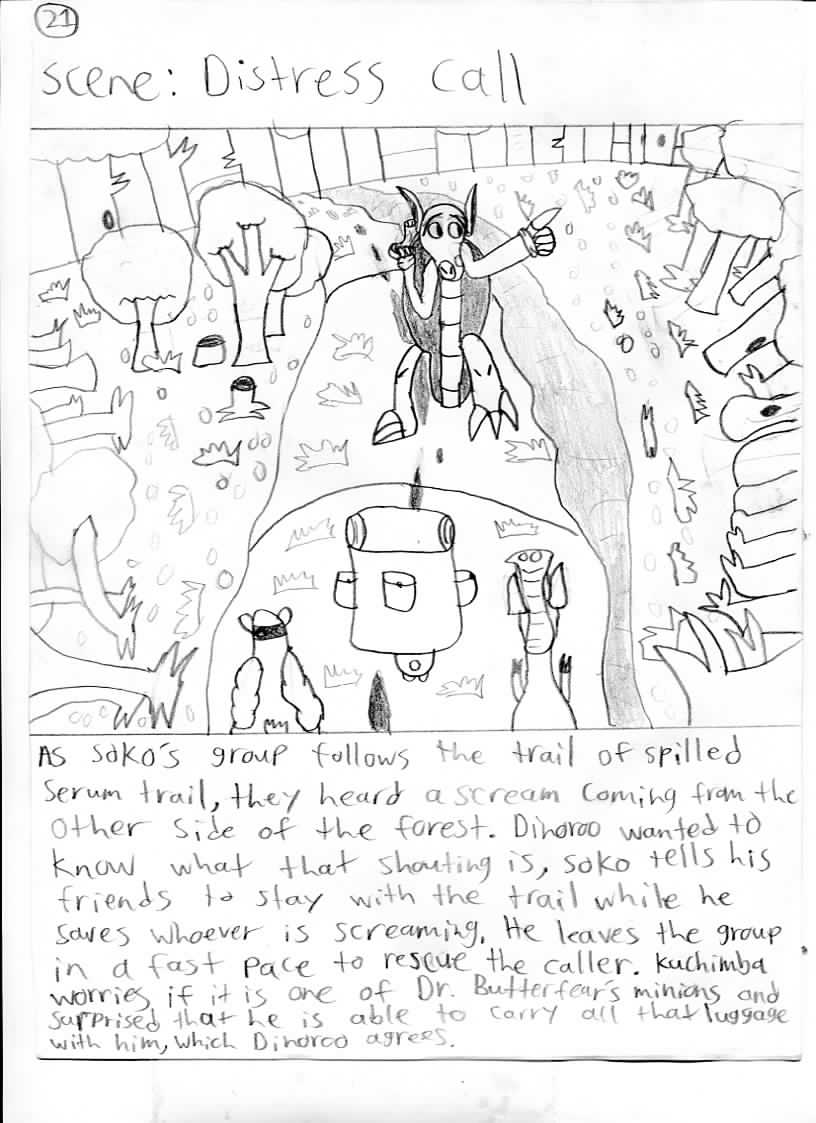 21
Scene: Distress Call
As Soko's group follows the trail of spilled
Serum trail, they heard a scream coming from the
other side of the forest. Dinoroo wanted to
know what that shouting is, Soko tells his
friends to stay with the trail while he
saves whoever is screaming. He leaves the group
in a fast pace to rescue the caller. Kuchimba
worries if it is one of Dr. Butterfear's minions and
surprised that he is able to carry all that luggage
with him, which Dinoroo agrees.